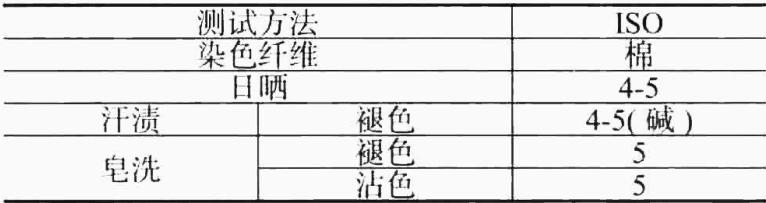 测试方法 ISO
染色纤维 棉
日晒 4-5
汗渍 褪色 4-5(碱)
皂洗 褪色 5
沾色 5